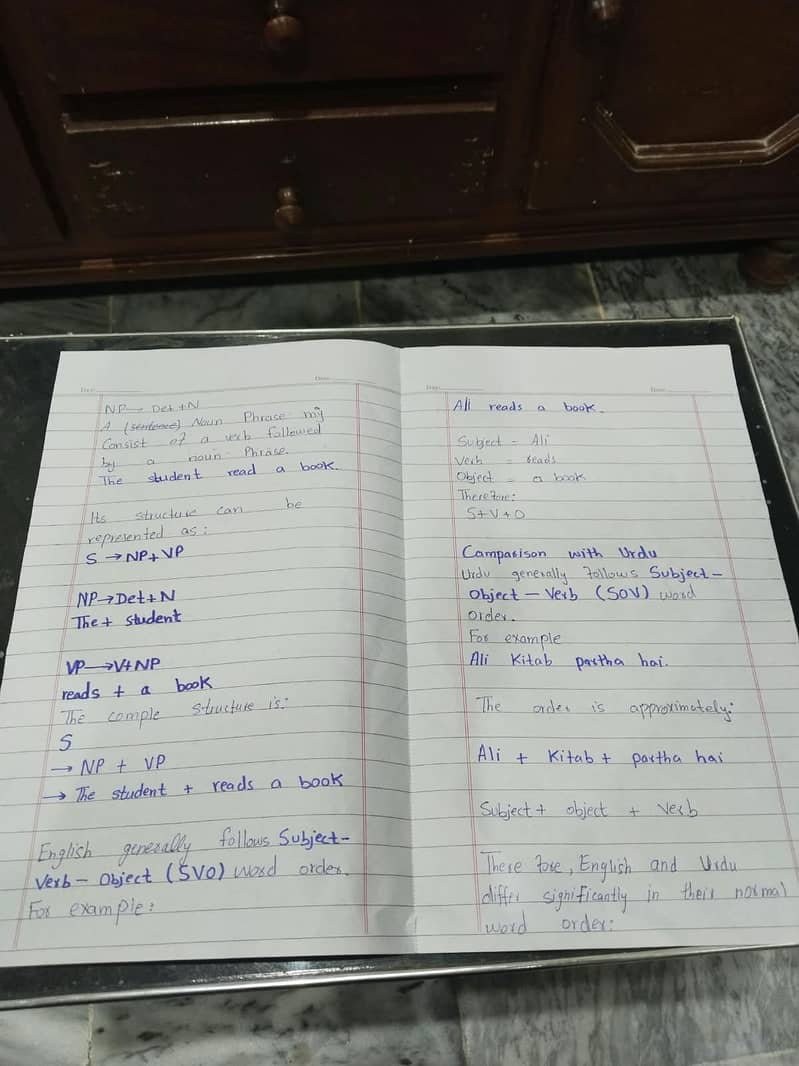 Date:
Date:
NP → Det + N
A (sentence) Noun Phrase my
Consist of a verb followed
by a noun Phrase.
The student read a book.
Its structure can be
represented as:
S → NP + VP
NP → Det + N
The + student
VP → V + NP
reads + a book
The comple structure is:
S
→ NP + VP
→ The student + reads a book
English generally follows Subject-
Verb - Object (SVO) word order.
For example:
Date:
Date:
Ali reads a book.
Subject = Ali
Verb = reads
Object = a book
Therefore:
S + V + O
Comparison with Urdu
Urdu generally follows Subject-
Object - Verb (SOV) word
order.
For example
Ali Kitab partha hai.
The order is approximately:
Ali + Kitab + partha hai
Subject + object + Verb
There fore, English and Urdu
differ significantly in their normal
word order: